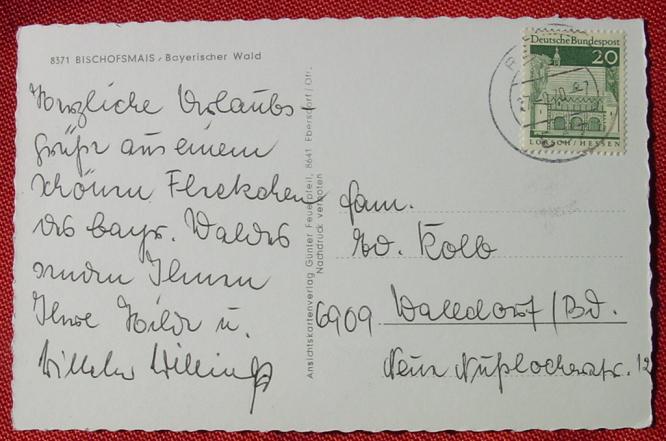 8371 BISCHOFSMAIS, Bayerischer Wald
Herzliche Urlaubs-
grüße aus einem
schönen Fleckchen
des bayr. Waldes
senden Ihnen
Ihre Hilde u.
Wilhelm
Ansichtskartenverlag Günter Feuerpfeil, 8641 Ebersdorf/Ofr.
Nachdruck verboten
Deutsche Bundespost
20
LORSCH/HESSEN
Fam.
Ed. Kolb
6909 Walldorf/Bd.
Neue Nußlocherstr. 12